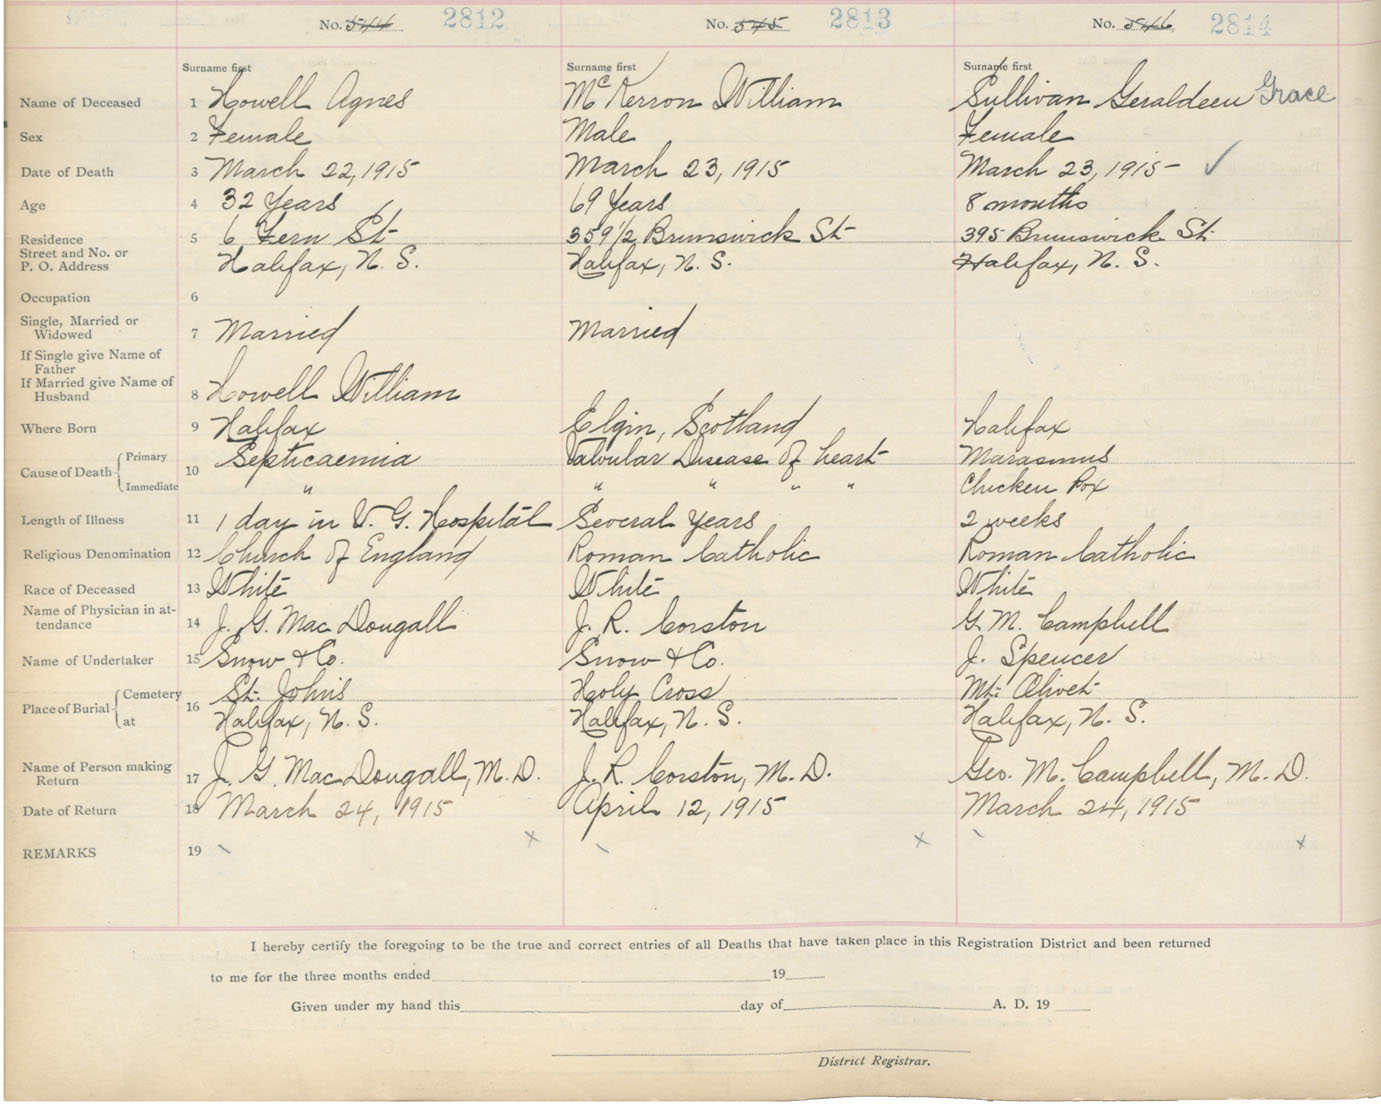 No. 544 2812 No. 545 2813 No. 546 2814
Surname first Surname first Surname first
Name of Deceased 1 Howell Agnes McKerron William Sullivan Geraldeen Grace
Sex 2 Female Male Female
Date of Death 3 March 22, 1915 March 23, 1915 March 23, 1915 ✓
Age 4 32 Years 69 Years 8 months
Residence 5 6 Fern St 359 1/2 Brunswick St 395 Brunswick St
Street and No. or
P. O. Address Halifax, N. S. Halifax, N. S. Halifax, N. S.
Occupation 6
Single, Married or
Widowed 7 Married Married
If Single give Name of
Father
If Married give Name of
Husband 8 Howell William
Where Born 9 Halifax Elgin, Scotland Halifax
Cause of Death { Primary 10 Septicaemia Valvular Disease of heart Marasmus
Immediate " " " " " Chicken Pox
Length of Illness 11 1 day in V. G. Hospital Several years 2 weeks
Religious Denomination 12 Church of England Roman Catholic Roman Catholic
Race of Deceased 13 White White White
Name of Physician in at-
tendance 14 J. G. MacDougall J. R. Corston G. M. Campbell
Name of Undertaker 15 Snow & Co. Snow & Co. J. Spencer
Place of Burial { Cemetery 16 St. John's Holy Cross Mt. Olivet
at Halifax, N. S. Halifax, N. S. Halifax, N. S.
Name of Person making
Return 17 J. G. MacDougall, M. D. J. R. Corston, M. D. Geo. M. Campbell, M. D.
Date of Return 18 March 24, 1915 April 12, 1915 March 24, 1915
REMARKS 19 x x x
I hereby certify the foregoing to be the true and correct entries of all Deaths that have taken place in this Registration District and been returned
to me for the three months ended 19
Given under my hand this day of A. D. 19
District Registrar.